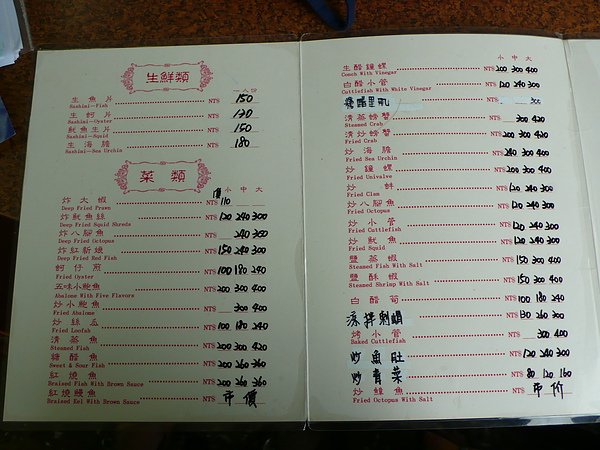 生鮮類
一人份
生魚片 NT$ 150
Sashimi—Fish
生蚵片 NT$ 120
Sashimi—Oyster
魷魚生片 NT$ 150
Sashimi—Squid
生海膽 NT$ 180
Sashimi—Sea Urchin
菜類
小 中 大
炸大蝦 NT$ 110
Deep Fried Prawn
炸魷魚絲 NT$ 120 240 300
Deep Fried Squid Shreds
炸八腳魚 240 350
Deep Fried Octopus
炸紅新娘 NT$ 150 240 300
Deep Fried Red Fish
蚵仔煎 NT$ 100 180 240
Fried Oyster
五味小鮑魚 NT$ 200 300 400
Abalone With Five Flavors
炒小鮑魚 NT$ 300 400
Fried Abalone
炒絲瓜 NT$ 100 180 240
Fried Loofah
清蒸魚 NT$ 200 300 420
Steamed Fish
糖醋魚 NT$ 200 260 360
Sweet & Sour Fish
紅燒魚 NT$ 200 260 360
Braised Fish With Brown Sauce
紅燒鰻魚 NT$ 市價
Braised Eel With Brown Sauce
小 中 大
生醋鐘螺 NT$ 200 300 400
Conch With Vinegar
白醋小管 NT$ 120 240 300
Cuttlefish With White Vinegar
300
清蒸螃蟹 NT$ 300 420
Steamed Crab
清炒螃蟹 NT$ 200 300 420
Fried Crab
炒海膽 NT$ 240 300 400
Fried Sea Urchin
炒鐘螺 NT$ 200 300 400
Fried Univalve
炒蚌 NT$ 120 240 300
Fried Clam
炒八腳魚 NT$ 120 240 300
Fried Octopus
炒小管 NT$ 120 240 300
Fried Cuttlefish
炒魷魚 NT$ 120 240 300
Fried Squid
鹽蒸蝦 NT$ 150 300 400
Steamed Fish With Salt
鹽酥蝦 NT$ 150 300 400
Steamed Shrimp With Salt
白醋筍 NT$ 100 180 240
涼拌 NT$ 130 260 300
烤小管 NT$ 300 400
Baked Cuttlefish
炒魚肚 NT$ 120 240 300
炒青菜 NT$ 80 120 160
炒鱆魚 NT$ 市价
Fried Octopus With Salt